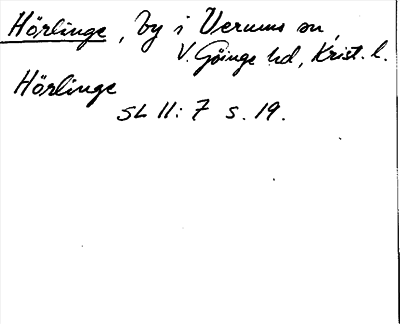 Hörlinge, by i Verums sn,
V. Göinge hd, Krist. l.
Hörlinge
SL II: 7 s. 19.